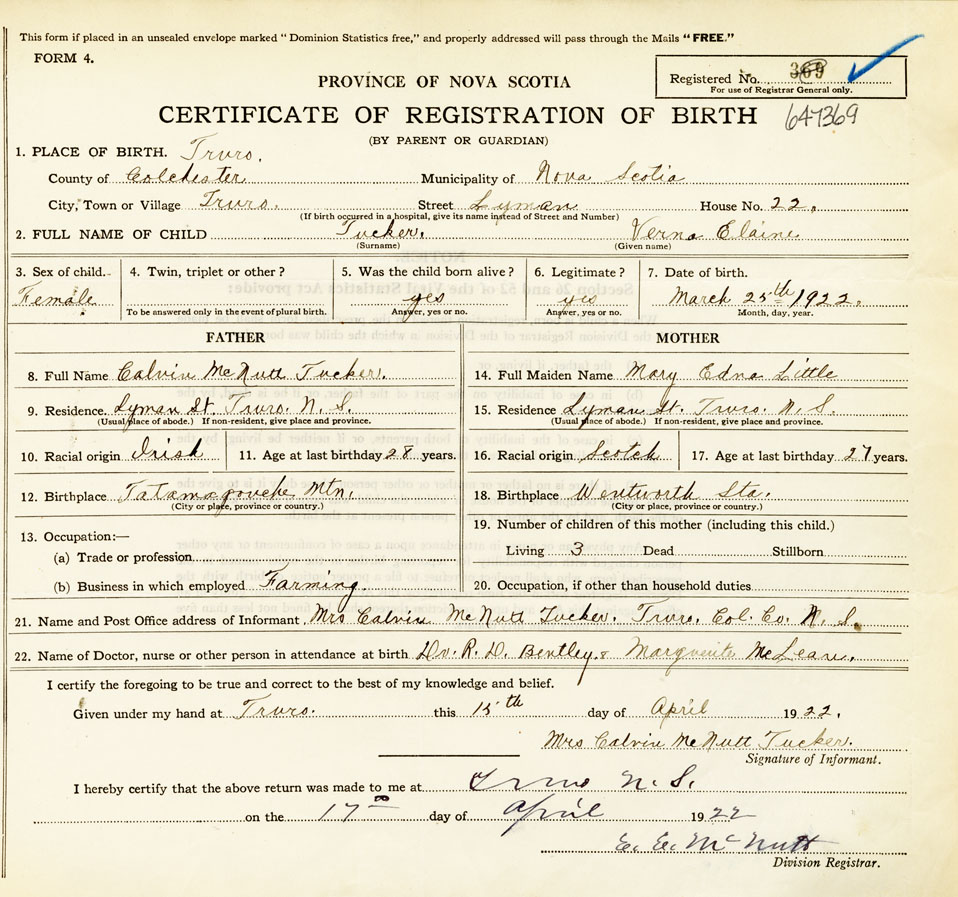 This form if placed in an unsealed envelope marked “Dominion Statistics free,” and properly addressed will pass through the Mails “FREE.”
FORM 4.
Registered No. 369
For use of Registrar General only.
PROVINCE OF NOVA SCOTIA
CERTIFICATE OF REGISTRATION OF BIRTH 647369
(BY PARENT OR GUARDIAN)
1. PLACE OF BIRTH. Truro.
County of Colchester Municipality of Nova Scotia
City, Town or Village Truro. Street Lyman House No. 22.
(If birth occurred in a hospital, give its name instead of Street and Number)
2. FULL NAME OF CHILD Tucker. Verna Elaine
(Surname) (Given name)
3. Sex of child. 4. Twin, triplet or other? 5. Was the child born alive? 6. Legitimate? 7. Date of birth.
Female yes yes March 25th 1922.
To be answered only in the event of plural birth. Answer, yes or no. Answer, yes or no. Month, day, year.
FATHER MOTHER
8. Full Name Calvin McNutt Tucker. 14. Full Maiden Name Mary Edna Little
9. Residence. Lyman St. Truro. N. S. 15. Residence Lyman St. Truro. N. S.
(Usual place of abode.) If non-resident, give place and province. (Usual place of abode.) If non-resident, give place and province.
10. Racial origin Irish 11. Age at last birthday 28 years. 16. Racial origin Scotch 17. Age at last birthday 27 years.
12. Birthplace Tatamagouche Mtn. 18. Birthplace Wentworth Sta.
(City or place, province or country.) (City or place, province or country.)
13. Occupation:— 19. Number of children of this mother (including this child.)
(a) Trade or profession Living 3 Dead Stillborn
(b) Business in which employed Farming. 20. Occupation, if other than household duties
21. Name and Post Office address of Informant. Mrs Calvin McNutt Tucker. Truro, Col. Co. N. S.
22. Name of Doctor, nurse or other person in attendance at birth Dr. R. D. Bentley. & Marguerite McLean.
I certify the foregoing to be true and correct to the best of my knowledge and belief.
Given under my hand at Truro. this 15th day of April 1922.
Mrs Calvin McNutt Tucker.
Signature of Informant.
I hereby certify that the above return was made to me at Truro N. S.
on the 17th day of April 1922
E. E. McNutt
Division Registrar.